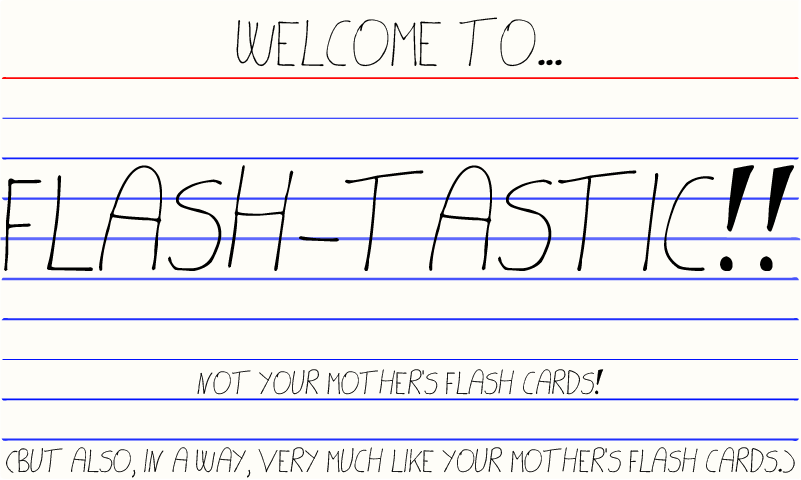 WELCOME TO...
FLASH-TASTIC!!
NOT YOUR MOTHER'S FLASH CARDS!
(BUT ALSO, IN A WAY, VERY MUCH LIKE YOUR MOTHER'S FLASH CARDS.)